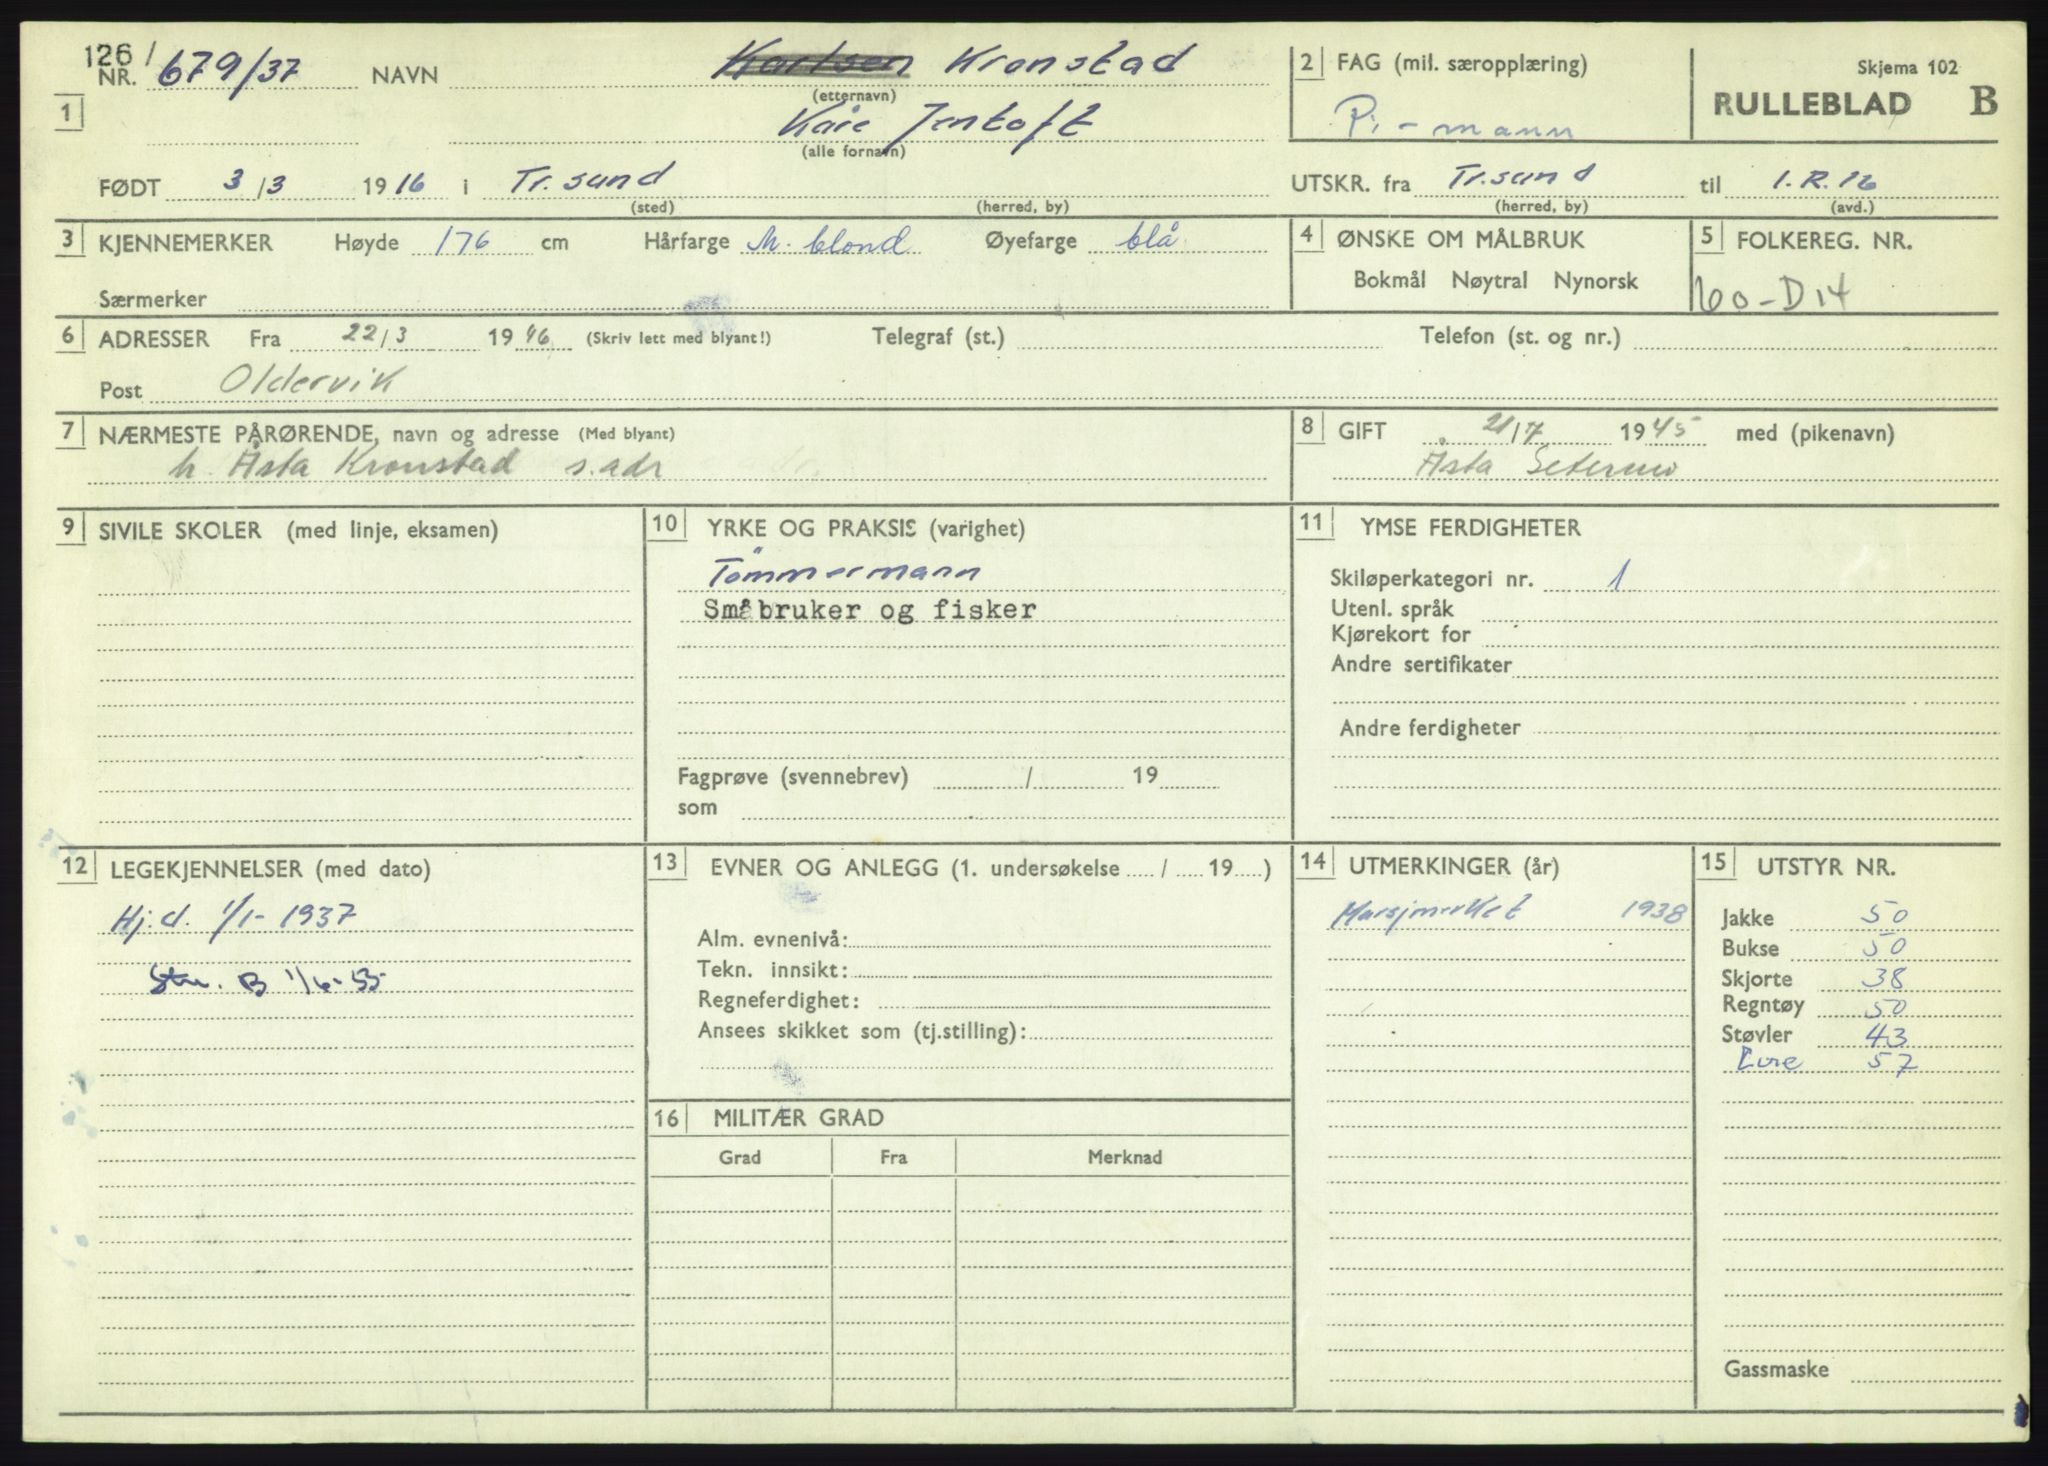 126/
NR. 679/37 NAVN Karlsen Kronstad
(etternavn)
1 Kåre Jentoft
(alle fornavn)
2 FAG (mil. særopplæring)
Pi-mann
Skjema 102
RULLEBLAD B
FØDT 3/3 1916 i Tr.sund
(sted) (herred, by)
UTSKR. fra Tr.sund til I.R.16
(herred, by) (avd.)
3 KJENNEMERKER Høyde 176 cm Hårfarge M. blond Øyefarge blå
Særmerker
4 ØNSKE OM MÅLBRUK
Bokmål Nøytral Nynorsk
5 FOLKEREG. NR.
60-D14
6 ADRESSER Fra 22/3 1946 (Skriv lett med blyant!) Telegraf (st.) Telefon (st. og nr.)
Post Oldervik
7 NÆRMESTE PÅRØRENDE, navn og adresse (Med blyant)
h. Åsta Kronstad s.adr
8 GIFT 21/7 1945 med (pikenavn)
Åsta
9 SIVILE SKOLER (med linje, eksamen)
10 YRKE OG PRAKSIS (varighet)
Tømmermann
Småbruker og fisker
Fagprøve (svennebrev) / 19
som
11 YMSE FERDIGHETER
Skiløperkategori nr. 1
Utenl. språk
Kjørekort for
Andre sertifikater
Andre ferdigheter
12 LEGEKJENNELSER (med dato)
Hj.d. 1/1-1937
B 1/6-55
13 EVNER OG ANLEGG (1. undersøkelse / 19 )
Alm. evnenivå:
Tekn. innsikt:
Regneferdighet:
Ansees skikket som (tj.stilling):
14 UTMERKINGER (år)
Marsjmerket 1938
15 UTSTYR NR.
Jakke 50
Bukse 50
Skjorte 38
Regntøy 50
Støvler 43
Lue 57
Gassmaske
16 MILITÆR GRAD
Grad Fra Merknad